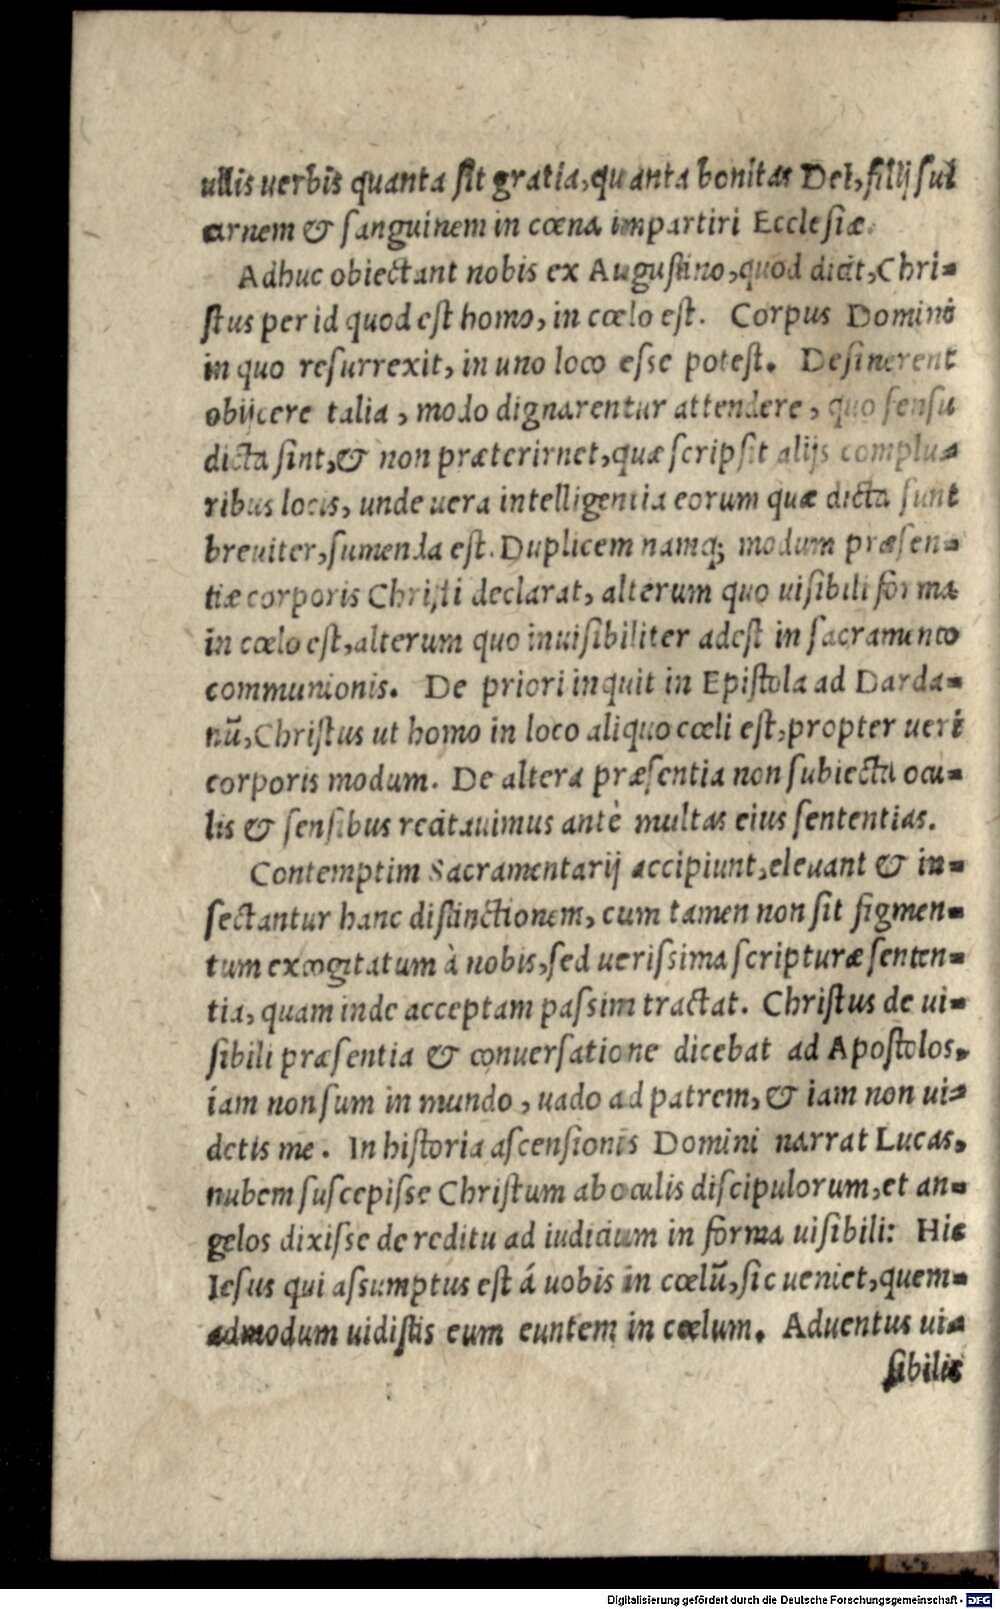 ullis uerbis quanta sit gratia, quanta bonitas Dei, filij sui
carnem & sanguinem in cœna impartiri Ecclesiæ.
Adhuc obiectant nobis ex Augustino, quod dicit, Chri-
stus per id quod est homo, in cœlo est. Corpus Domini
in quo resurrexit, in uno loco esse potest. Desinerent
obijcere talia, modo dignarentur attendere, quo sensu
dicta sint, & non præterirnet, quæ scripsit alijs complu-
ribus locis, unde uera intelligentia eorum quæ dicta sunt
breuiter, sumenda est. Duplicem namq; modum præsen-
tiæ corporis Christi declarat, alterum quo uisibili forma
in cœlo est, alterum quo inuisibiliter adest in sacramento
communionis. De priori inquit in Epistola ad Darda-
nũ, Christus ut homo in loco aliquo cœli est, propter ueri
corporis modum. De altera præsentia non subiecta ocu-
lis & sensibus recitauimus antè multas eius sententias.
Contemptim Sacramentarij accipiunt, eleuant & in-
sectantur hanc distinctionem, cum tamen non sit figmen-
tum excogitatum à nobis, sed uerissima scripturæ senten-
tia, quam inde acceptam passim tractat. Christus de ui-
sibili præsentia & conuersatione dicebat ad Apostolos,
iam non sum in mundo, uado ad patrem, & iam non ui-
detis me. In historia ascensionis Domini narrat Lucas,
nubem suscepisse Christum ab oculis discipulorum, et an-
gelos dixisse de reditu ad iudicium in forma uisibili: Hic
Iesus qui assumptus est á uobis in cœlũ, sic ueniet, quem-
admodum uidistis eum euntem in cœlum. Aduentus ui-
sibilis
Digitalisierung gefördert durch die Deutsche Forschungsgemeinschaft - DFG